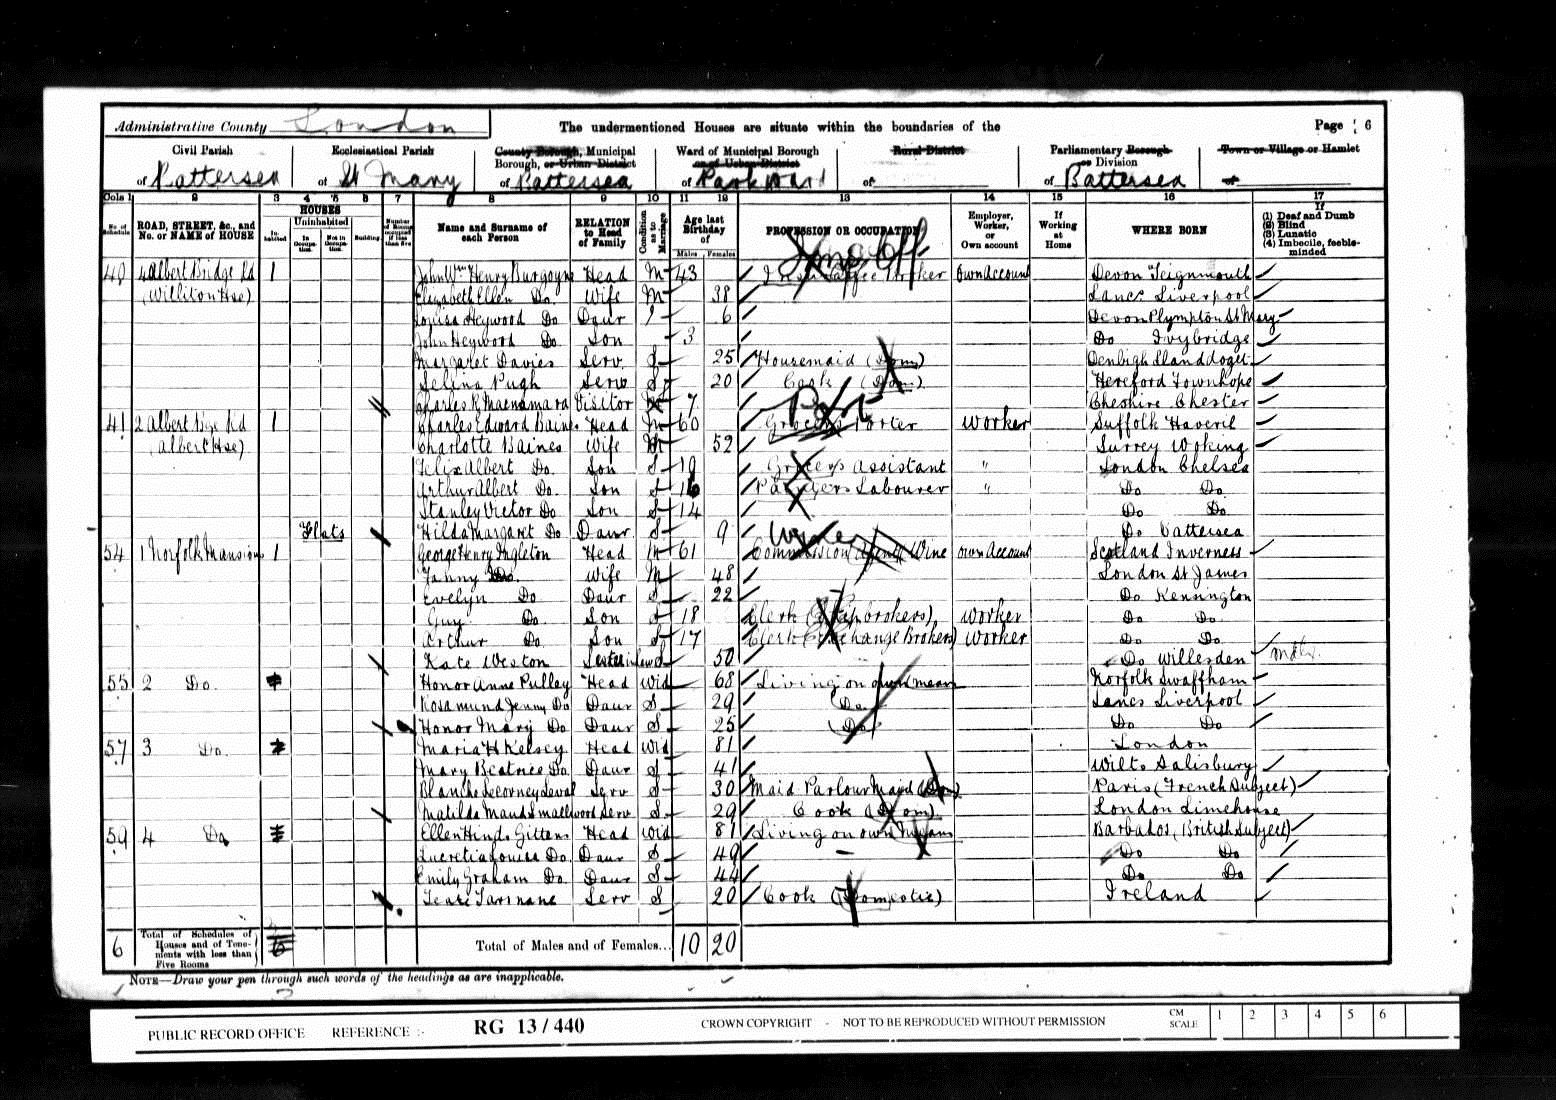 Administrative County London
The undermentioned Houses are situate within the boundaries of the
Page 6
Civil Parish
of Battersea
Ecclesiastical Parish
of St Mary
County Borough, Municipal
Borough, or Urban District
of Battersea
Ward of Municipal Borough
or of Urban District
of Park Ward
Rural District
of
Parliamentary Borough
or Division
of Battersea
Town or Village or Hamlet
of
Cols 1 2 3 4 5 6 7 8 9 10 11 12 13 14 15 16 17
No. of Schedule
ROAD, STREET, &c., and No. or NAME of HOUSE
HOUSES
Inhabited
Uninhabited
In Occupation.
Not in Occupation.
Building
Number of Rooms occupied if less than five
Name and Surname of each Person
RELATION to Head of Family
Condition as to Marriage
Age last Birthday of
Males Females
PROFESSION OR OCCUPATION
Employer, Worker, or Own account
If Working at Home
WHERE BORN
If
(1) Deaf and Dumb
(2) Blind
(3) Lunatic
(4) Imbecile, feeble-minded
40 4 Albert Bridge Rd 1 John Wm Henry Burgoyne Head M 43 own Account Devon Teignmouth
(Williton Hse) Elizabeth Ellen Do. Wife M 38 Lancs Liverpool
Louisa Heywood Do Daur 6 Devon Plympton St Mary
John Heywood Do Son 3 Do Ivybridge
Margaret Davies Serv S 25 Housemaid (Dom) Denbigh Llanddoget
Selina Pugh Serv S 20 Cook (Dom) Hereford Fownhope
Charles R Macnamara Visitor 7 Cheshire Chester
41 2 Albert Bge Rd 1 Charles Edward Baines Head M 60 Grocers Porter Worker Suffolk Haveril
(Albert Hse) Charlotte Baines Wife M 52 Surrey Woking
Felix Albert Do. Son S 19 Grocers Assistant " London Chelsea
Arthur Albert Do. Son S 16 Labourer " Do Do.
Stanley Victor Do Son S 14 Do Do
Flats Hilda Margaret Do Daur S 9 Do Battersea
54 1 Norfolk Mansions 1 George Henry Ingleton Head M 61 Commission Agent Wine own Account Scotland Inverness
Fanny Do. Wife M 48 London St James
Evelyn Do Daur S 22 Do Kensington
Guy Do Son S 18 Clerk Worker Do Do.
Arthur Do Son S 17 Clerk (Exchange Brokers) Worker Do Do.
Kate Weston Sister in law S 50 Do Willesden
55 2 Do. Honor Anne Pulley Head Wid 68 Living on own means Norfolk Swaffham
Rosamund Jenny Do Daur S 29 (Do Lancs Liverpool
Honor Mary Do Daur S 25 (Do) Do Do
57 3 Do. Maria H Kelsey Head Wid 81 London
Mary Beatrice Do Daur S 41 Wilts Salisbury
Blanche Serv S 30 Maid Parlour Maid (Dom) Paris (French Subject)
Matilda Maud Smallwood Serv S 29 Cook (Dom) London Limehouse
59 4 Do Ellen Hinds Gittens Head Wid 81 Living on own Means Barbados (British Subject)
Lucretia Louisa Do Daur S 49 – Do Do
Emily Graham Do Daur S 44 Do Do
Serv S 20 Cook (Domestic) Ireland
6 Total of Schedules of Houses and of Tenements with less than Five Rooms
Total of Males and of Females... 10 20
NOTE—Draw your pen through such words of the headings as are inapplicable.
PUBLIC RECORD OFFICE REFERENCE :- RG 13 / 440 CROWN COPYRIGHT - NOT TO BE REPRODUCED WITHOUT PERMISSION CM SCALE 1 2 3 4 5 6